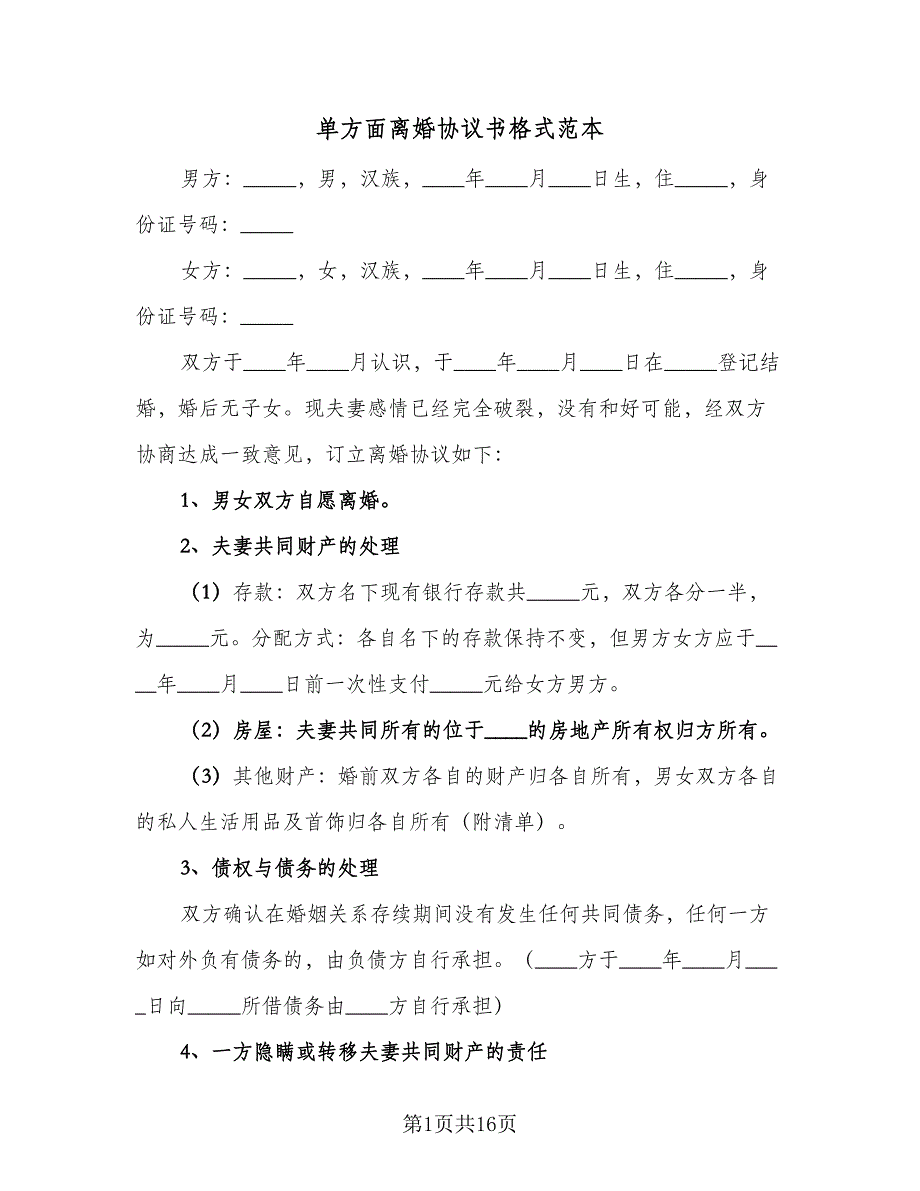 单方面离婚协议书格式范本
男方：_____，男，汉族，____年____月____日生，住_____，身
份证号码：_____
女方：_____，女，汉族，____年____月____日生，住_____，身
份证号码：_____
双方于____年____月认识，于____年____月____日在_____登记结
婚，婚后无子女。现夫妻感情已经完全破裂，没有和好可能，经双方
协商达成一致意见，订立离婚协议如下：
1、男女双方自愿离婚。
2、夫妻共同财产的处理
（1）存款：双方名下现有银行存款共_____元，双方各分一半，
为_____元。分配方式：各自名下的存款保持不变，但男方女方应于__
__年____月____日前一次性支付_____元给女方男方。
（2）房屋：夫妻共同所有的位于____的房地产所有权归方所有。
（3）其他财产：婚前双方各自的财产归各自所有，男女双方各自
的私人生活用品及首饰归各自所有（附清单）。
3、债权与债务的处理
双方确认在婚姻关系存续期间没有发生任何共同债务，任何一方
如对外负有债务的，由负债方自行承担。（____方于____年____月___
_日向_____所借债务由____方自行承担）
4、一方隐瞒或转移夫妻共同财产的责任
第1页共16页